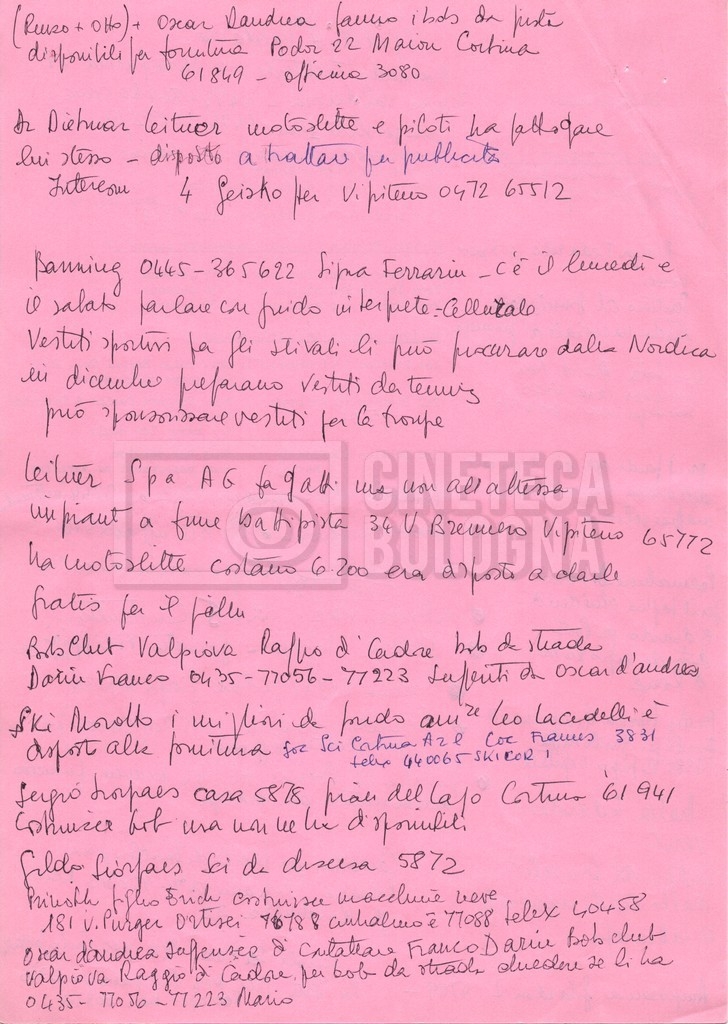 (Renzo + Otto) + Oscar Dandrea fanno i bobs da pista
disponibili per fornitura Podar 22 Maion Cortina
61849 - officina 3080
Dietmar Leitner motoslitte e piloti ha gare
lui stesso - disposto a trattare per pubblicità
Intercom 4 per Vipiteno 0472 65512
Banning 0445-365622 Sig.na Ferrarin - c'è il lunedì e
il sabato parlare con Guido interprete - 
Vestiti sportivi per gli stivali li può procurare dalla Nordica
in dicembre preparano vestiti da tennis
può sponsorizzare vestiti per la troupe
Leitner Spa AG fa gatti ma non all'altezza
impianti a fune battipista 34 V Brennero Vipiteno 65772
ha motoslitte costano 6.200 era disposto a darle
gratis per il film
CINETECA
BOLOGNA
Bob Club Valpiova di Cadore bob da strada
Darin Franco 0435-77056-77223 suggeriti da Oscar d'andrea
Ski Morotto i migliori da fondo Leo Lacedelli è
disposto alla fornitura Sci Cortina 3831
telex 440065 SKICOR I
Sergio Siorpaes casa 5878 del Lago Cortina 61941
Costruisce bob ma non ne ha disponibili
Gildo Siorpaes Sci da discesa 5872
Prinoth figlio Erich costruisce macchine neve
181 V. Purger Ortisei 76788 centralino è 77088 telex 40458
Oscar d'andrea suggerisce di contattare Franco Darin Bob club
Valpiova di Cadore per bob da strada chiedere se li ha
0435-77056-77223 Mario